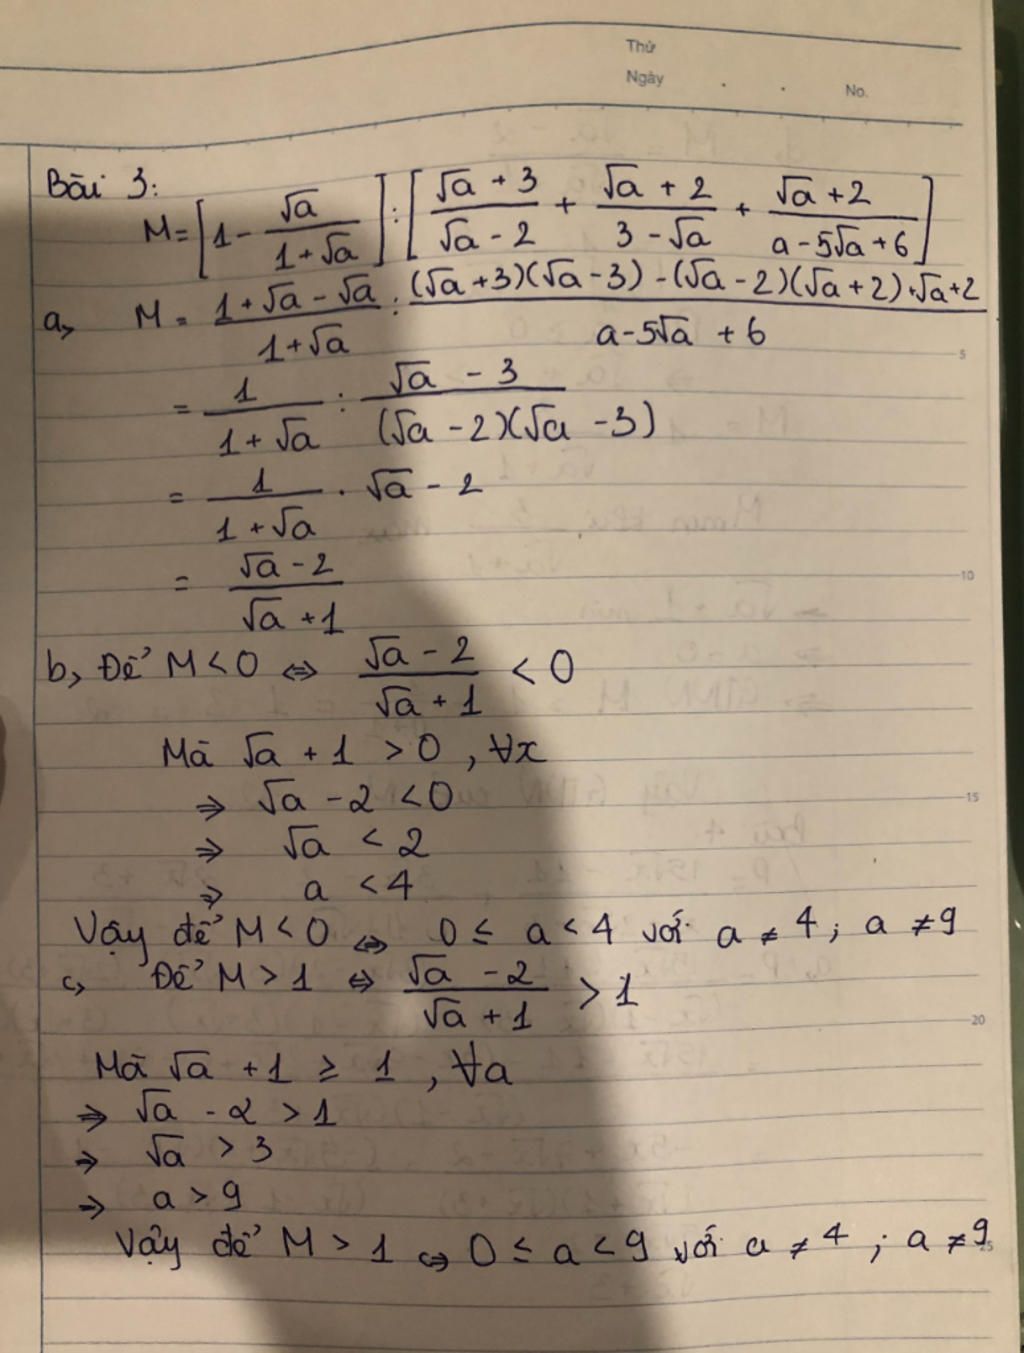 Thứ
Ngày . . No.
Bài 3:
M = [1 - √a / (1 + √a)] : [(√a + 3) / (√a - 2) + (√a + 2) / (3 - √a) + (√a + 2) / (a - 5√a + 6)]
a, M = (1 + √a - √a) / (1 + √a) : ((√a + 3)(√a - 3) - (√a - 2)(√a + 2) + √a + 2) / (a - 5√a + 6)
5
= 1 / (1 + √a) : (√a - 3) / ((√a - 2)(√a - 3))
= 1 / (1 + √a) . √a - 2
= (√a - 2) / (√a + 1)
10
b, Để M < 0 ⇔ (√a - 2) / (√a + 1) < 0
Mà √a + 1 > 0 , ∀x
⇒ √a - 2 < 0
15
⇒ √a < 2
⇒ a < 4
Vậy để M < 0 ⇔ 0 ≤ a < 4 với a ≠ 4 ; a ≠ 9
c, Để M > 1 ⇔ (√a - 2) / (√a + 1) > 1
20
Mà √a + 1 ≥ 1 , ∀a
⇒ √a - 2 > 1
⇒ √a > 3
⇒ a > 9
Vậy để M > 1 ⇔ 0 ≤ a < 9 với a ≠ 4 ; a ≠ 9
25